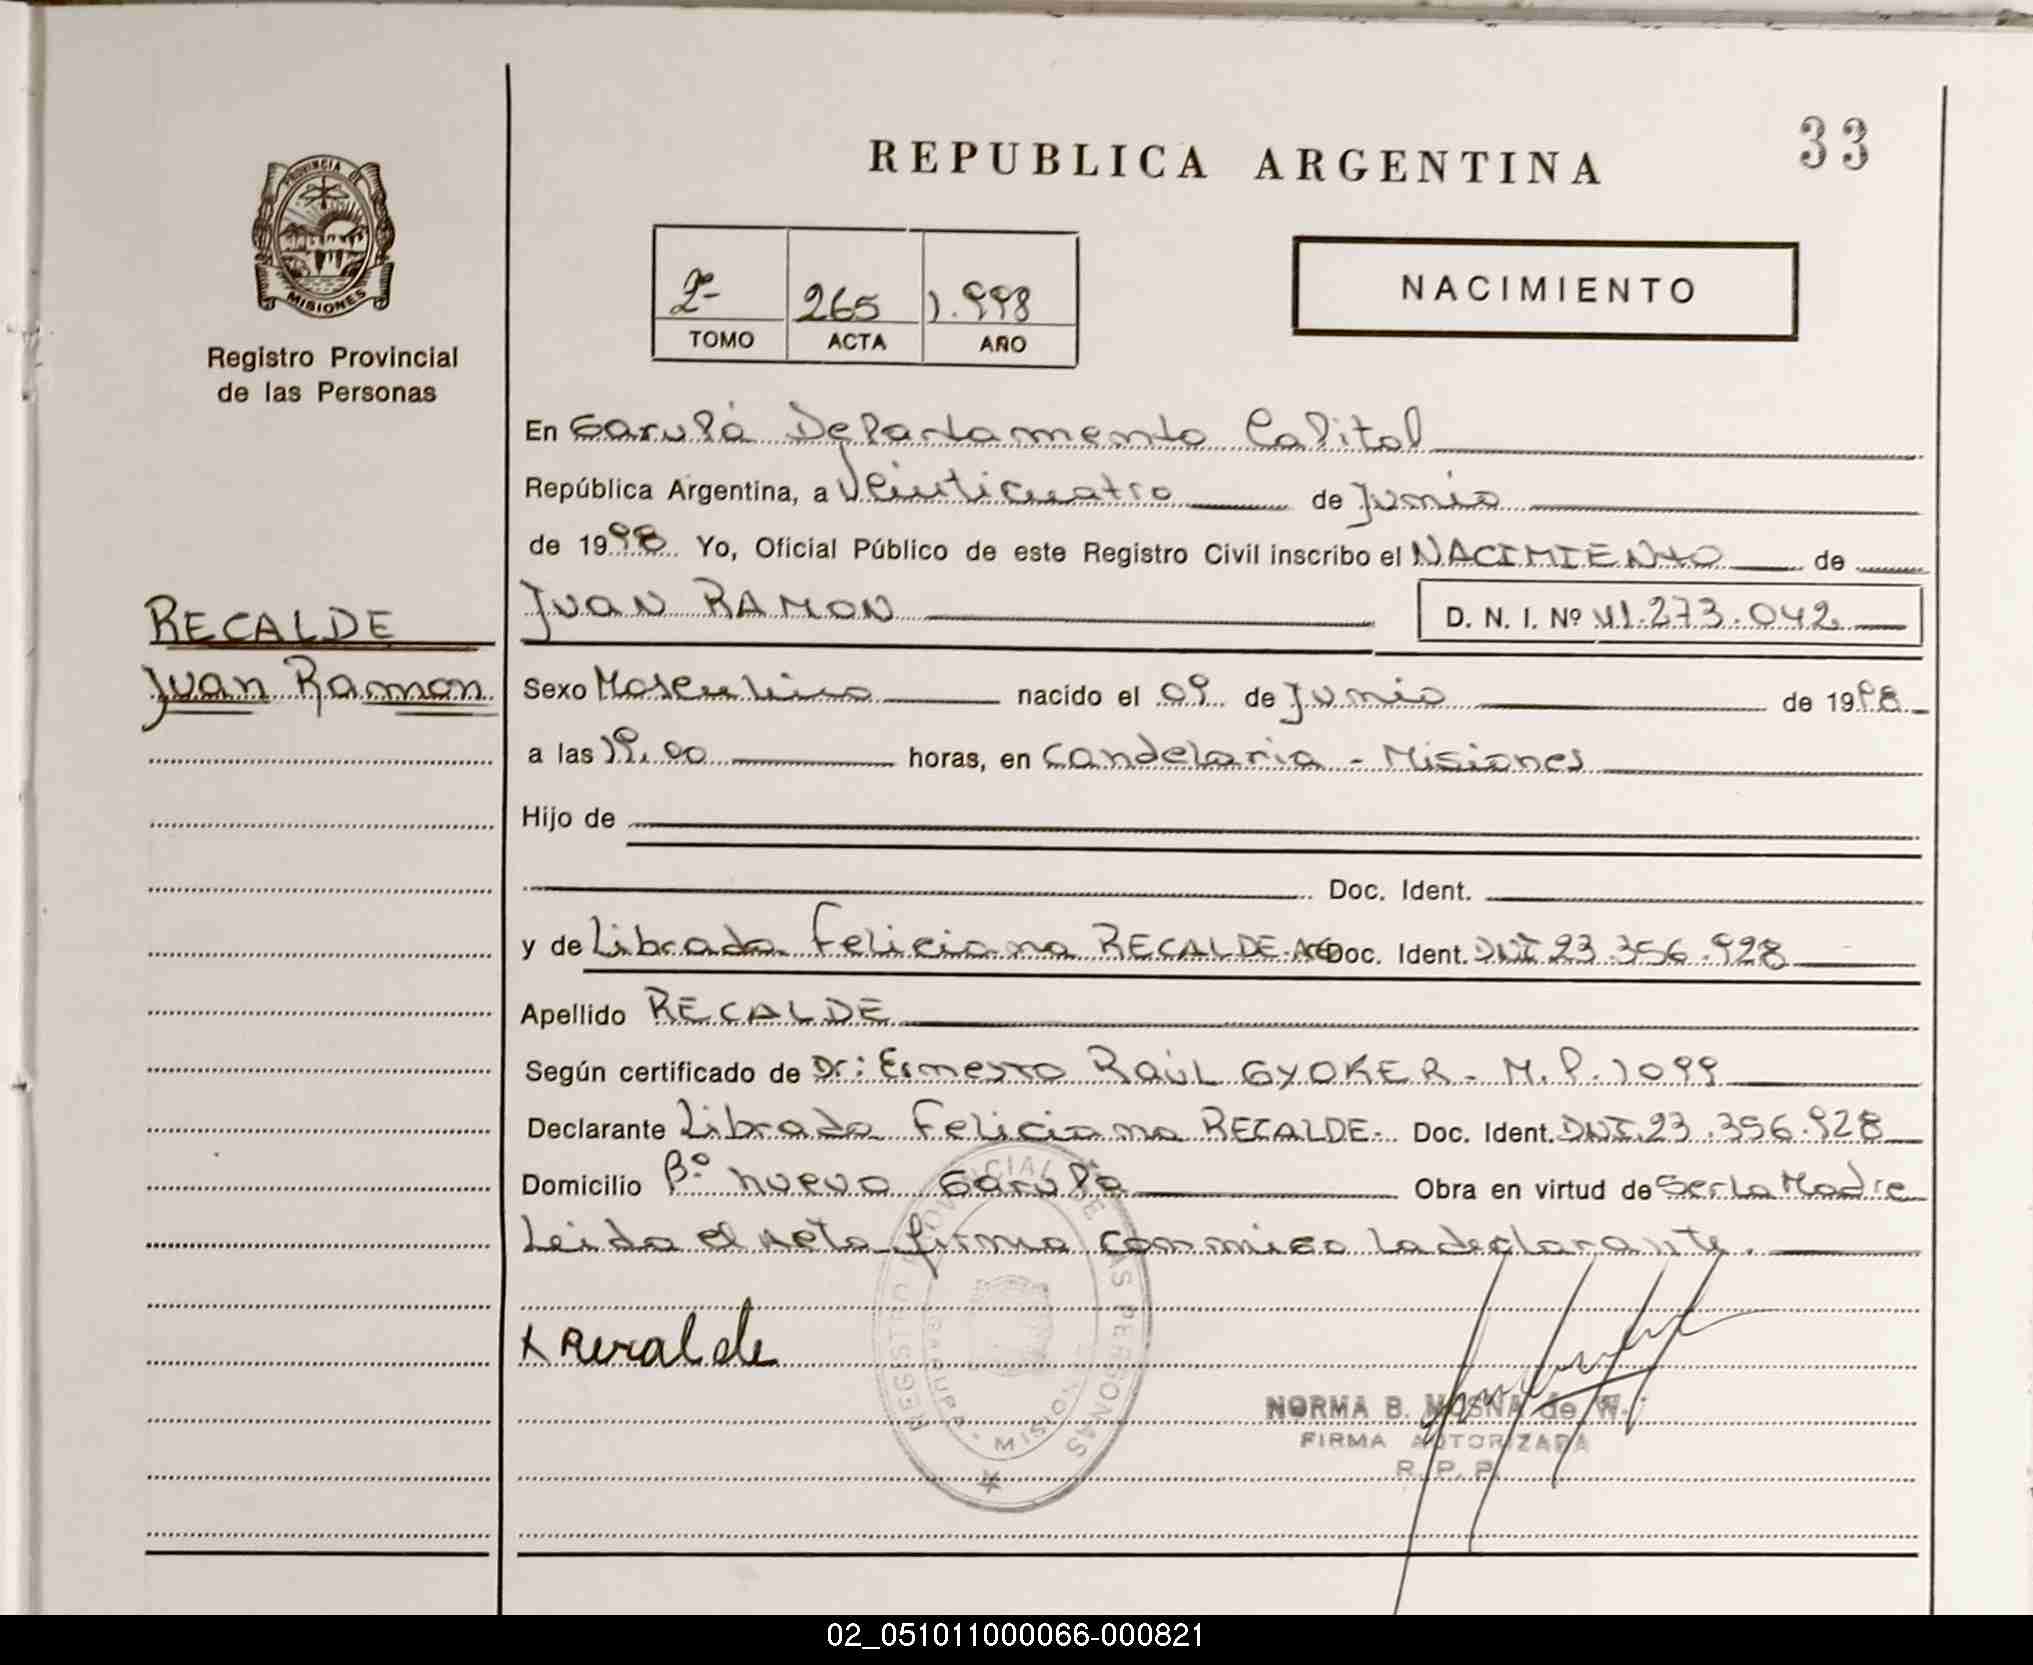 REPUBLICA ARGENTINA
33
PROVINCIA DE
MISIONES
Registro Provincial
de las Personas
2º
265
1.998
TOMO
ACTA
AÑO
NACIMIENTO
En Garupá Departamento Capital
República Argentina, a Veinticuatro de Junio
de 1998 Yo, Oficial Público de este Registro Civil inscribo el NACIMIENTO de
RECALDE
Juan Ramon
JUAN RAMON D. N. I. Nº 41.273.042
Sexo Masculino nacido el 09 de Junio de 1998
a las 19,00 horas, en Candelaria - Misiones
Hijo de
Doc. Ident.
y de Librada Feliciana RECALDE- Doc. Ident. DNI 23.356.928
Apellido RECALDE
Según certificado de Dr: Ernesto Raúl GYOKER - M.P. 1099
Declarante Librada Feliciana RECALDE- Doc. Ident. DNI.23.356.928
Domicilio Bº nuevo Garupá Obra en virtud de Ser La Madre
Leida el Acta firma conmigo la declarante.
REGISTRO PROVINCIAL DE LAS PERSONAS
GARUPA - MISIONES
x Recalde
NORMA B. MOSNA de W.
FIRMA AUTORIZADA
R. P. P.
02_051011000066-000821